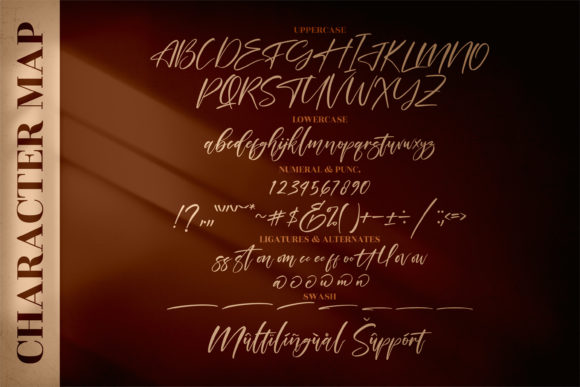 CHARACTER MAP
UPPERCASE
ABCDEFGHIJKLMNO
PQRSTUVWXYZ
LOWERCASE
abcdefghijklmnopqrstuvwxyz
NUMERAL & PUNC.
1234567890
LIGATURES & ALTERNATES
SWASH
Mûltilíñgùål Šûppórt